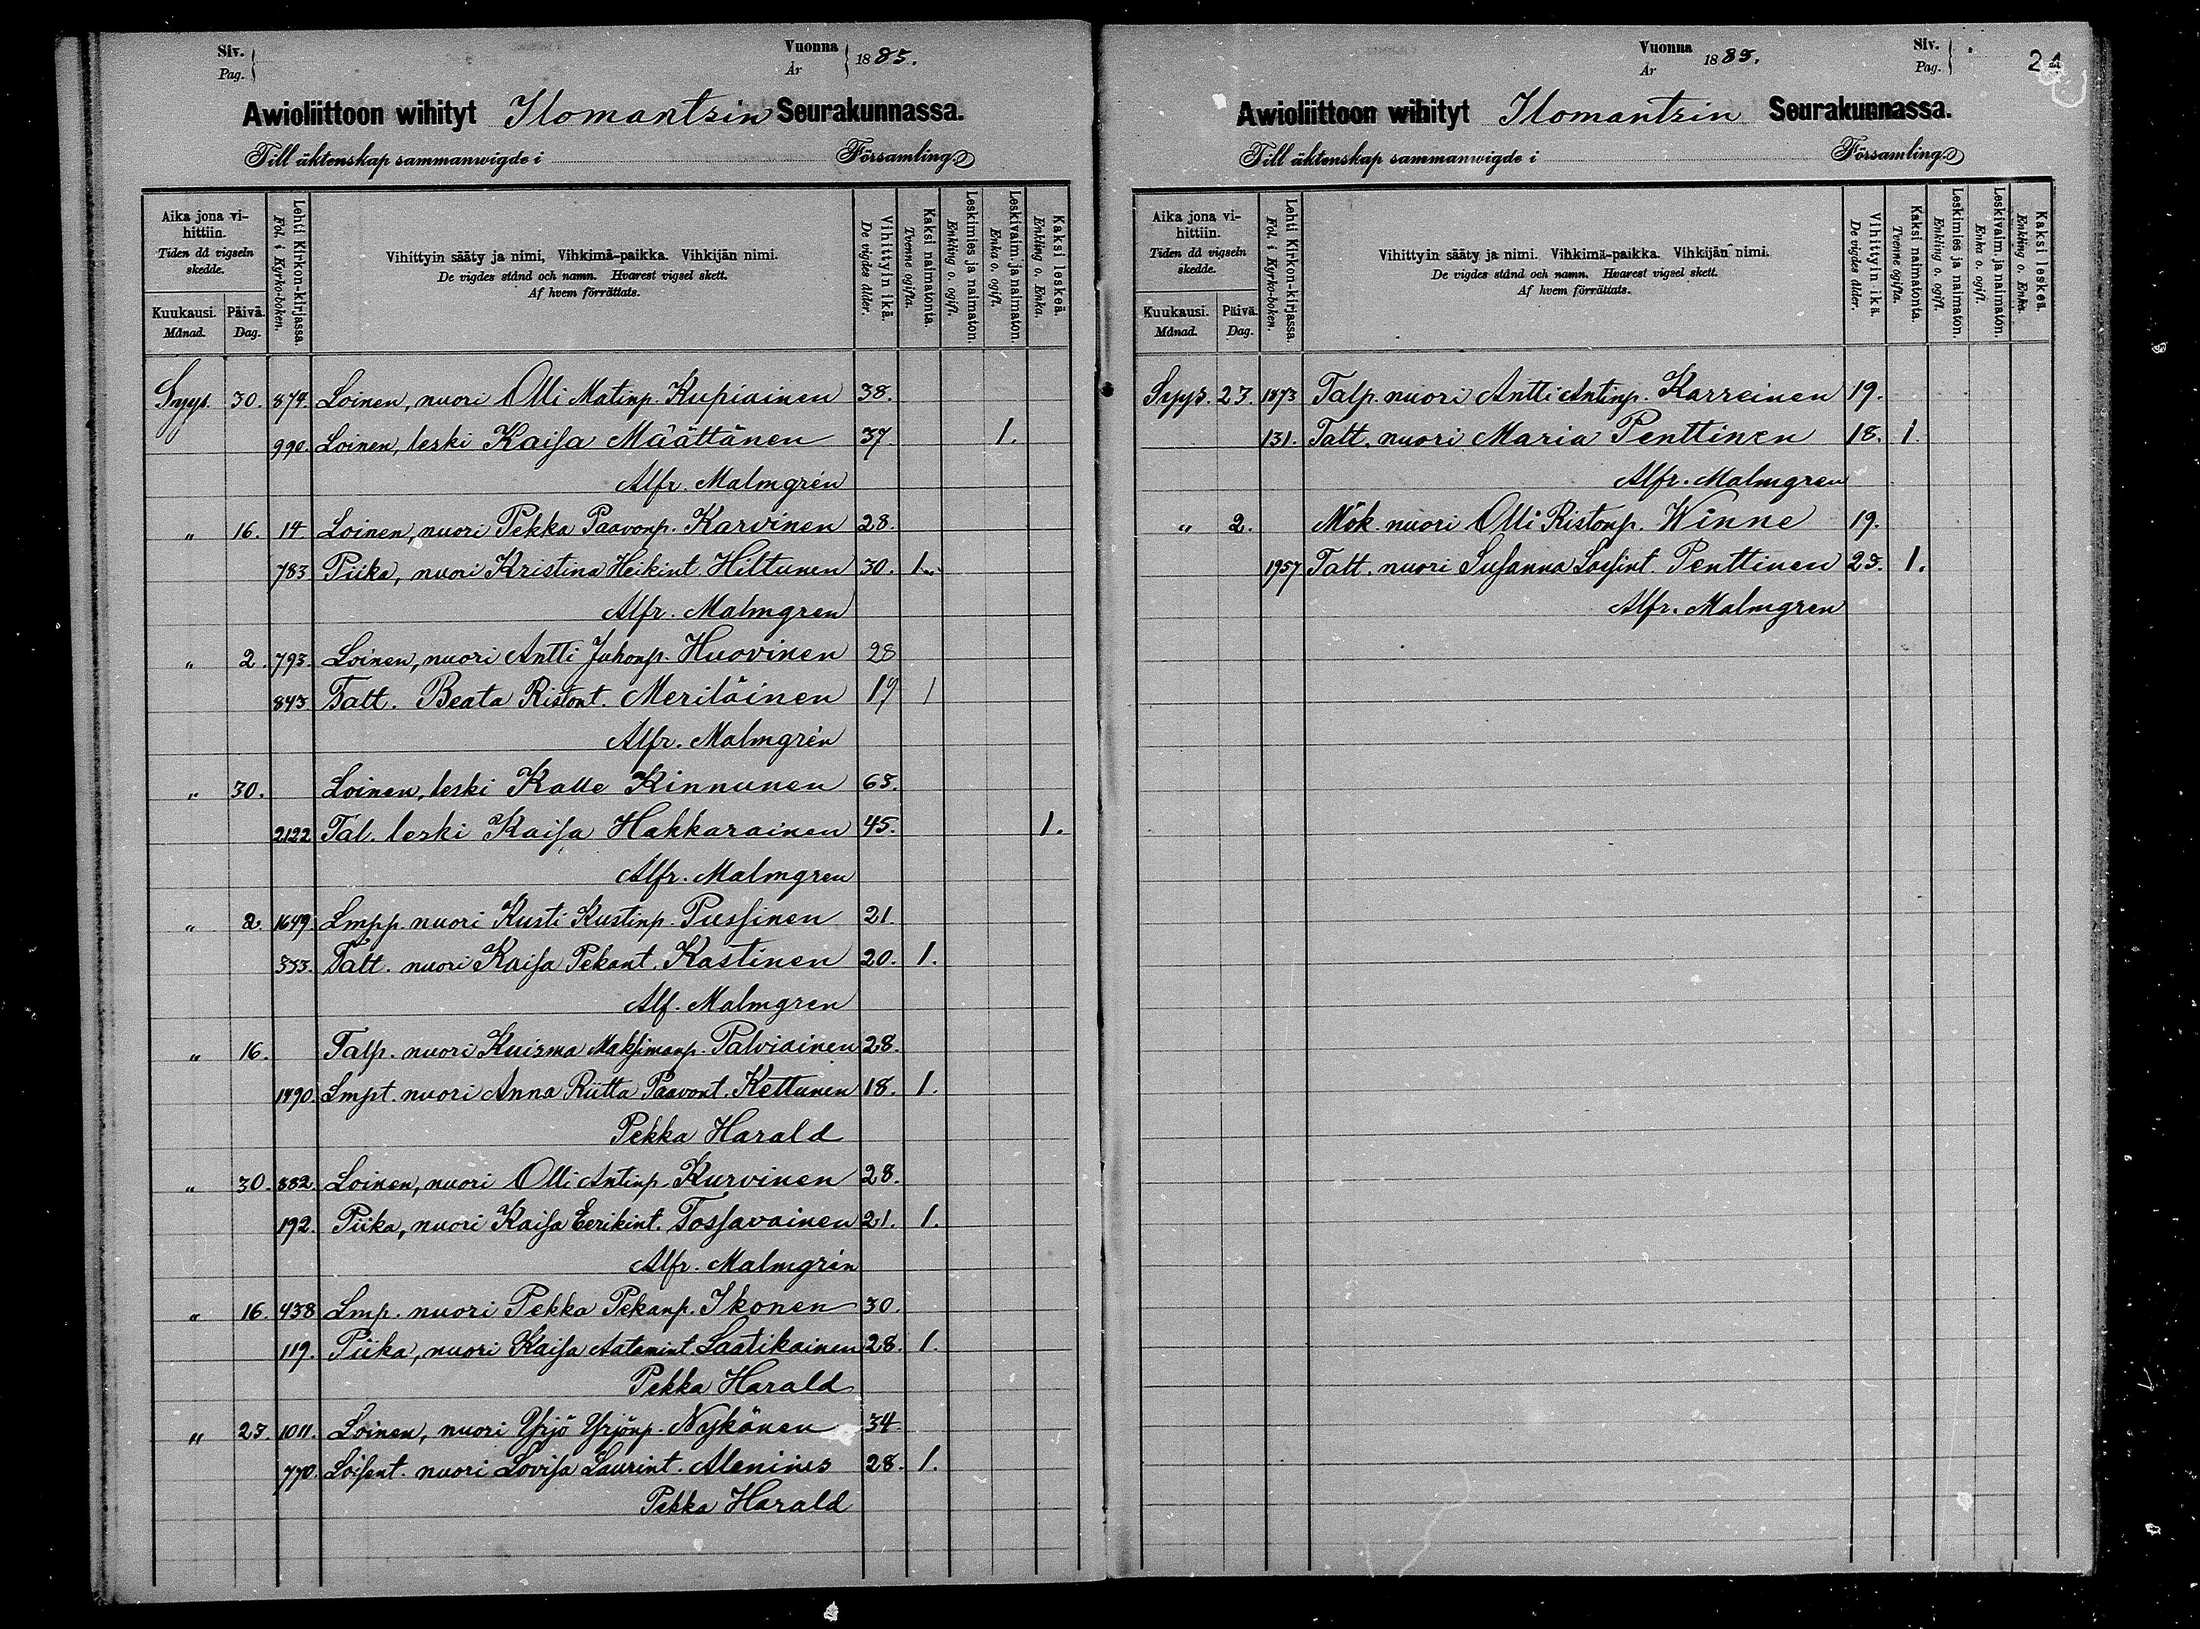 Siv.
Pag.
Vuonna
År
1885.
Awioliittoon wihityt Ilomantsin Seurakunnassa.
Till äktenskap sammanwigde i Församling.
Aika jona vi-
hittiin.
Tiden då vigseln
skedde.
Kuukausi.
Månad.
Päivä.
Dag.
Lehti Kirkon-kirjassa.
Fol. i Kyrko-boken.
Vihittyin sääty ja nimi, Vihkimä-paikka. Vihkijän nimi.
De vigdes stånd och namn. Hvarest vigsel skett.
Af hvem förrättats.
Vihittyin ikä.
De vigdes ålder.
Kaksi naimatonta.
Tvenne ogifta.
Leskimies ja naimaton.
Enkling o. ogift.
Leskivaim. ja naimaton.
Enka o. ogift.
Kaksi leskeä.
Enkling o. Enka.
Syys. 30. 874. Loinen, nuori Olli Matinp. Kupiainen 38.
990. Loinen, leski Kaisa Määttänen 37 1.
Alfr. Malmgrén
" 16. 14 Loinen, nuori Pekka Paavonp. Karvinen 28.
783 Piika, nuori Kristina Heikint. Hiltunen 30. 1.
Alfr. Malmgren
" 2. 793. Loinen, nuori Antti Juhonp. Huovinen 28
843. Talt. Beata Ristont. Meriläinen 19 1
Alfr. Malmgrén
" 30. Loinen, leski Kalle Kinnunen 63.
2122 Tal. leski Kaisa Hakkarainen 45. 1.
Alfr. Malmgren
" 2. 1649. Lmpp. nuori Kusti Kustinp. Pussinen 21.
333. Talt. nuori Kaisa Pekant. Kastinen 20. 1.
Alf. Malmgren
" 16. Talp. nuori Kuisma Maksimanp. Palviainen 28.
1490. Lmpt. nuori Anna Riitta Paavont. Kettunen 18. 1.
Pekka Harald
" 30. 882. Loinen, nuori Olli Antinp. Kurvinen 28.
192. Piika, nuori Kaisa Eerikint. Tossavainen 21. 1.
Alfr. Malmgrén
" 16. 438 Lmp. nuori Pekka Pekanp. Ikonen 30.
119. Piika, nuori Kaisa Aatamint. Laatikainen 28. 1.
Pekka Harald
" 23. 1011. Loinen, nuori Yrjö Yrjönp. Nykänen 34.
770. Loisent. nuori Lovisa Laurint. Alenius 28. 1.
Pekka Harald
Vuonna
År
1885.
Siv.
Pag.
Awioliittoon wihityt Ilomantsin Seurakunnassa.
Till äktenskap sammanwigde i Församling.
Aika jona vi-
hittiin.
Tiden då vigseln
skedde.
Kuukausi.
Månad.
Päivä.
Dag.
Lehti Kirkon-kirjassa.
Fol. i Kyrko-boken.
Vihittyin sääty ja nimi. Vihkimä-paikka. Vihkijän nimi.
De vigdes stånd och namn. Hvarest vigsel skett.
Af hvem förrättats.
Vihittyin ikä.
De vigdes ålder.
Kaksi naimatonta.
Tvenne ogifta.
Leskimies ja naimaton.
Enkling o. ogift.
Leskivaim. ja naimaton.
Enka o. ogift.
Kaksi leskeä.
Enkling o. Enka.
Syys. 23. 1873 Talp. nuori Antti Antinp. Karreinen 19.
131. Talt. nuori Maria Penttinen 18. 1.
Alfr. Malmgren
" 2. Mök. nuori Olli Ristonp. Winne 19.
1957 Talt. nuori Susanna Lassint. Penttinen 23. 1.
Alfr. Malmgren